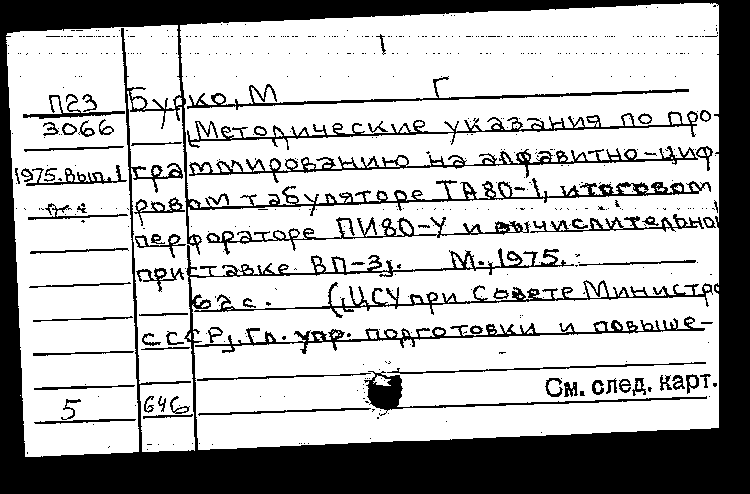 П23 Бурко, М Г
3066 [Методические указания по про-
1975. Вып. 1 граммированию на алфавитно-циф-
ровом табуляторе ТА80-1, итоговом
перфораторе ПИ80-У и вычислительной
приставке ВП-3]. М., 1975.
62 с. ([ЦСУ при Совете Министро
СССР]. Гл. упр. подготовки и повыше-
См. след. карт.
5 646